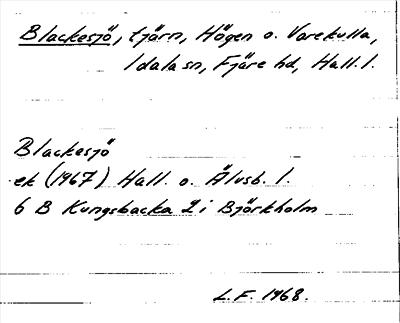 Blackesjö, tjärn, Högen o. Varekulla,
Idala sn, Fjäre hd, Hall. l.
Blackesjö
ek (1967) Hall. o. Älvsb. l.
6 B Kungsbacka 2 i Björkholm
L.F. 1968.